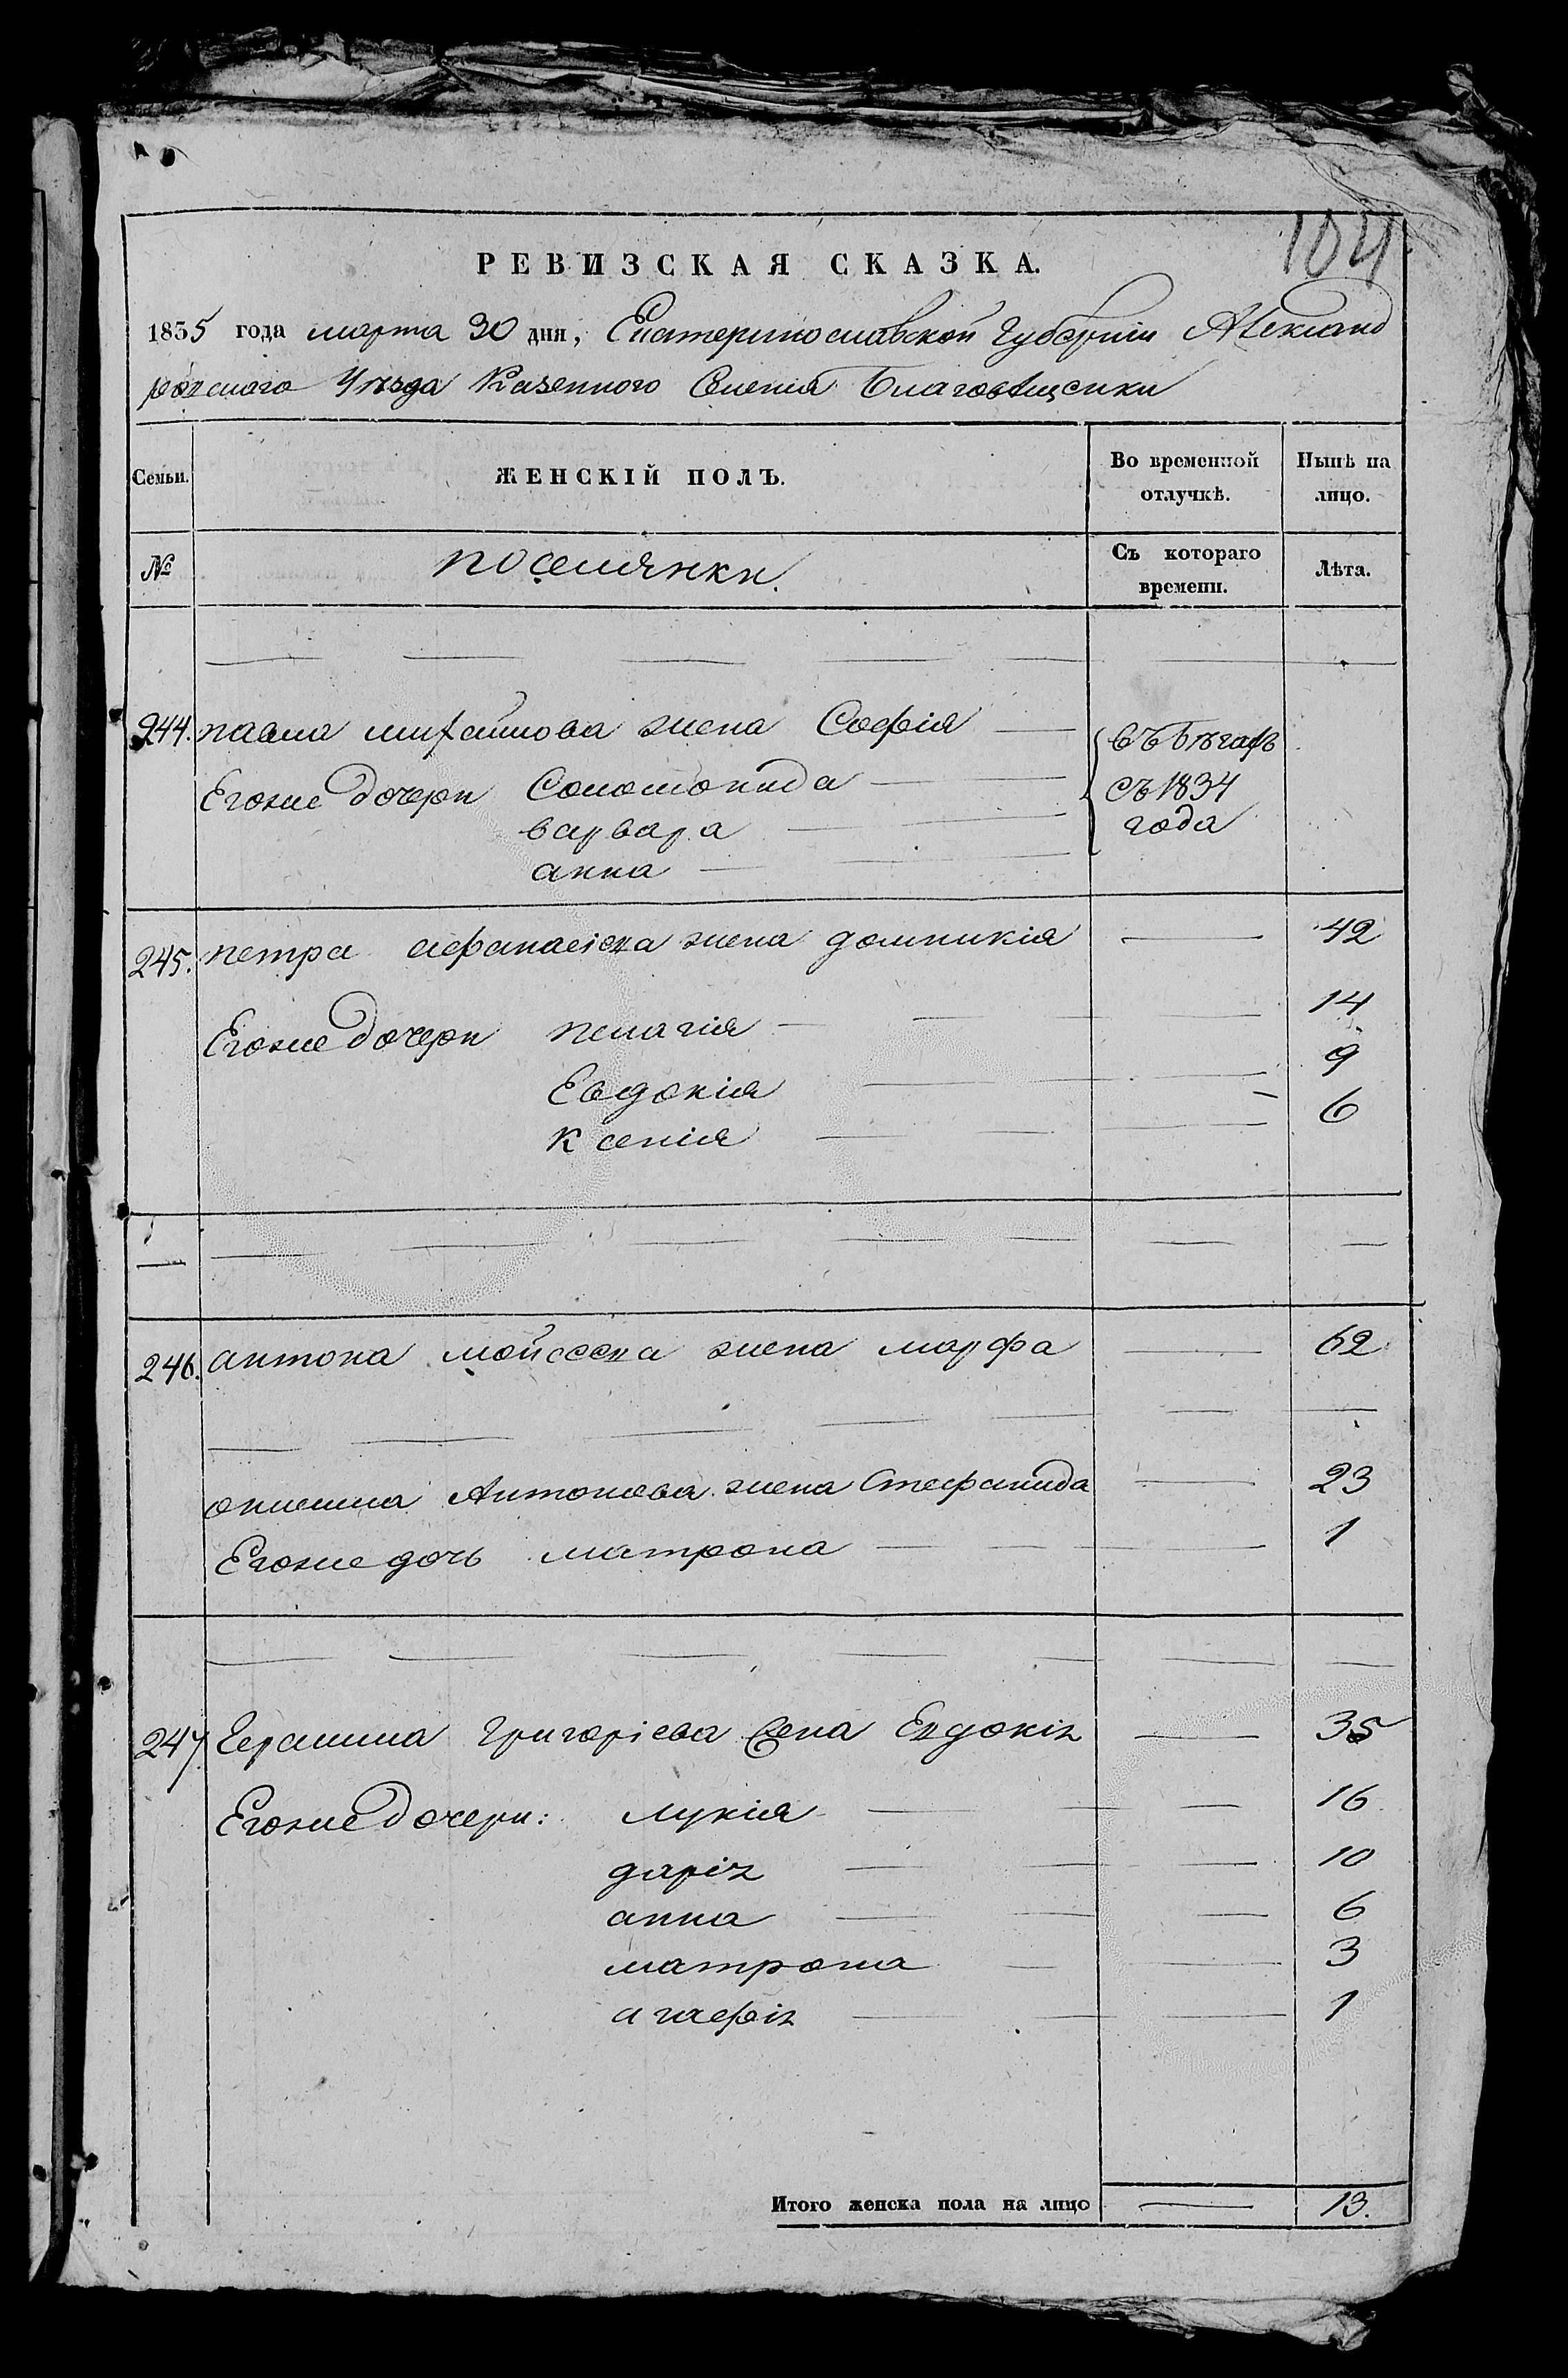 104
РЕВИЗСКАЯ СКАЗКА.
1835 года марта 30 дня, Екатеринославской Губерніи Александ
ровскаго Уѣзда Казенного Селенія Благовѣщенки
Семьи. ЖЕНСКІЙ ПОЛЪ. Во временной отлучкѣ. Нынѣ на лицо.
№ поселянки. Съ котораго времени. Лѣта.
244. павла михайлова жена Софія
въ бѣгахъ
Егоже дочери Соломонида
съ 1834
варвара
года
анна
245. петра афанасіева жена домникія 42
Егоже дочери пелагія 14
Евдокія 9
ксенія 6
246. антона мойсеева жена марфа 62
онисима Антонова жена Стефанида 23
Егоже дочь матрона 1
247. Герасима григоріева жена Евдокія 35
Егоже дочери: лукія 16
дарія 10
анна 6
матрона 3
агафія 1
Итого женска пола на лицо 13.